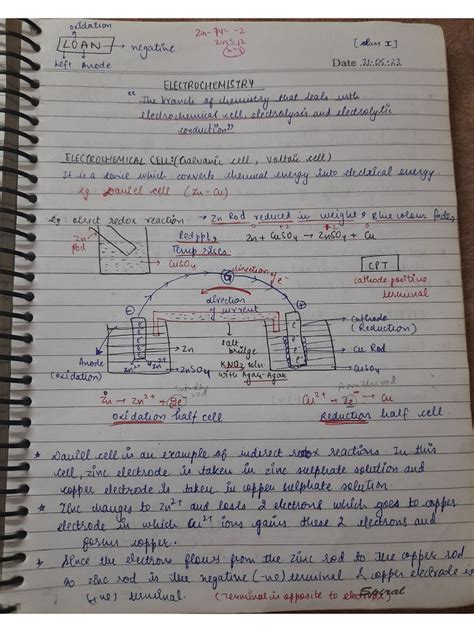 oxidation
LOAN → negative
Left Anode
2n - 14 = -2
2n = 12
n = 6
[class I]
Date 31.05.23
ELECTROCHEMISTRY
"The branch of chemistry that deals with
electrochemical cell, electrolysis and electrolytic
conduction"
ELECTROCHEMICAL CELL: (Galvanic cell, Voltaic cell)
It is a device which converts chemical energy into electrical energy
eg: Daniell cell (Zn-Cu)
Eg: direct redox reaction: → Zn Rod reduced in weight, Blue colour fades,
Zn Rod
Red ppt,
Temp rises
Zn + CuSO4 → ZnSO4 + Cu
CuSO4
CPT
cathode positive
terminal
direction of e-
direction
of current
Cathode
(Reduction)
Cu Rod
CuSO4
Anode
(oxidation)
Zn
ZnSO4
salt
bridge
KNO3 soln
with Agar-Agar
Zn → Zn2+ + 2e-
Cu2+ + 2e- → Cu
Oxidation half cell
Reduction half cell.
* Daniell cell is an example of indirect redox reactions. In this
cell, zinc electrode is taken in zinc sulphate solution and
copper electrode is taken in copper sulphate solution
* Zinc changes to Zn2+ and loses 2 electrons which goes to copper
electrode in which Cu2+ ions gains these 2 electrons and
forms copper.
* Since the electrons flows from the zinc rod to the copper rod
so zinc rod is the negative (-ve) terminal & copper electrode
(+ve) terminal. (Terminal is opposite to electrolysis)
Spiral